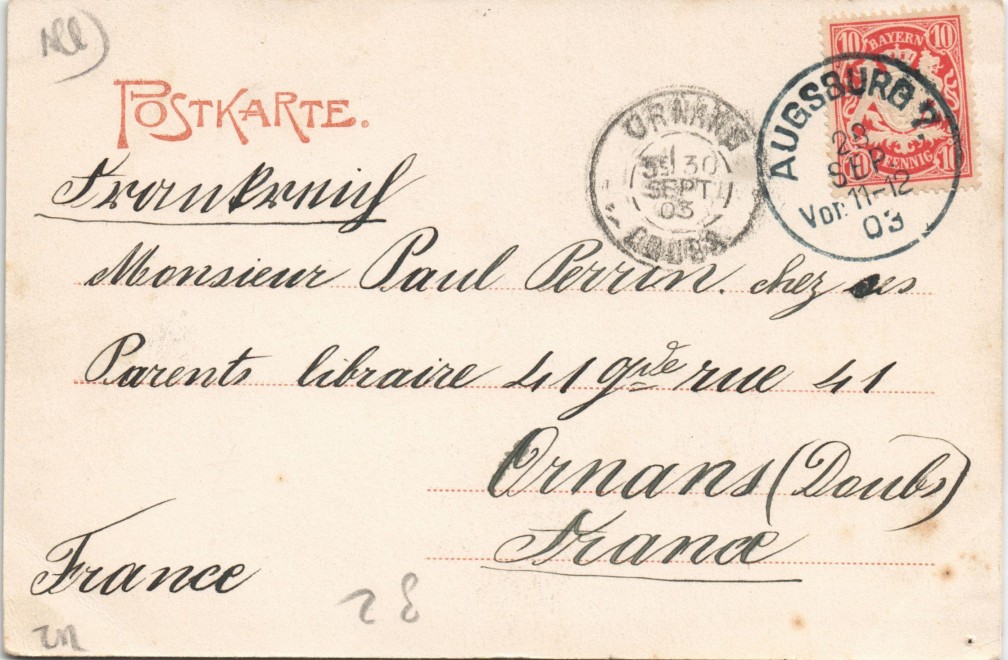 POSTKARTE.
BAYERN
10 10
PFENNIG
AUGSBURG 2
SEP.
Vor. 11-12
03
ORNANS
30
SEPT
03
DOUBS
Frankreich
Monsieur Paul Perrin. chez ses
Parents libraire 41 gnde rue 41
Ornans (Doubs)
France
France